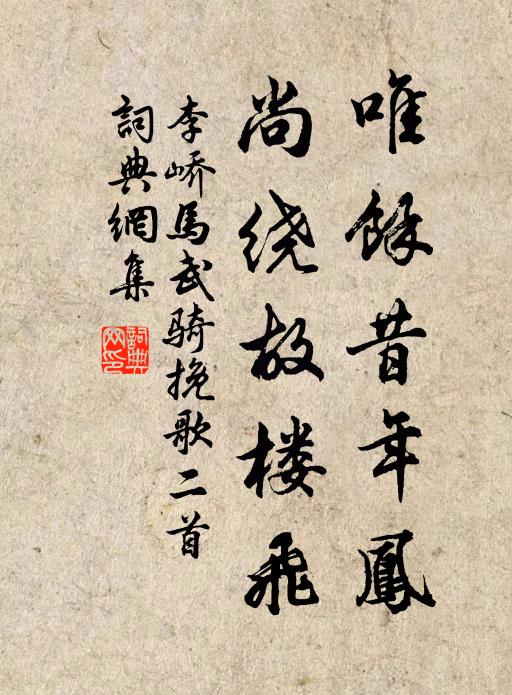 唯餘昔年鳳
尚绕故楼飛
李峤馬武骑挽歌二首
詞典網集
詞典網印